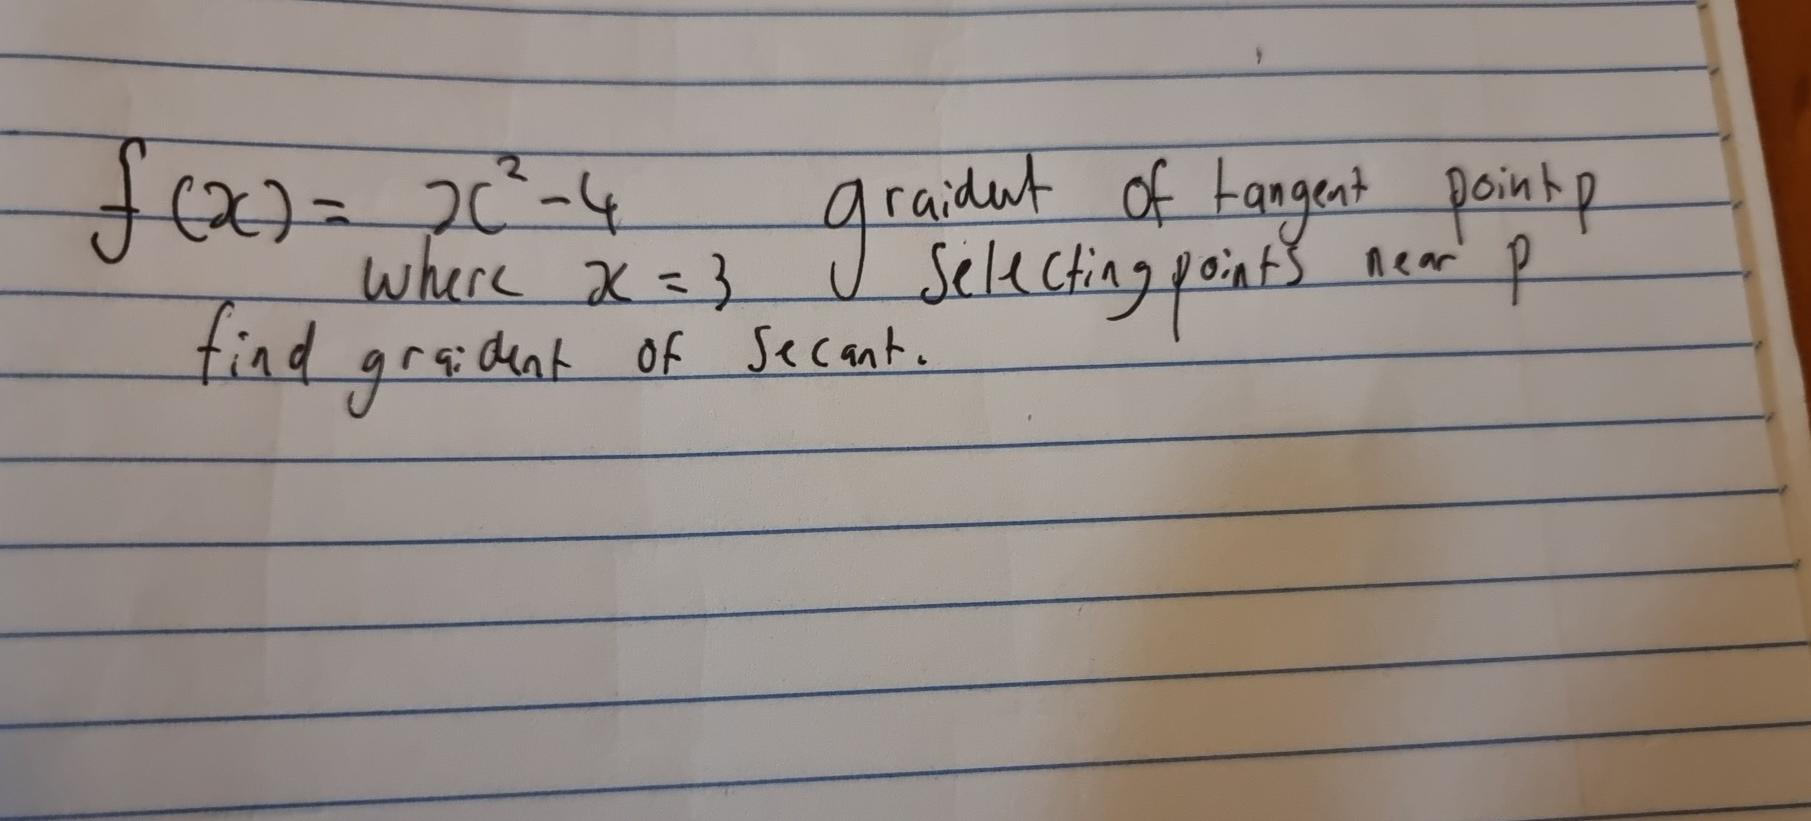 f(x) = x² - 4 graident of tangent point p
where x = 3 selecting points near p
find graident of secant.